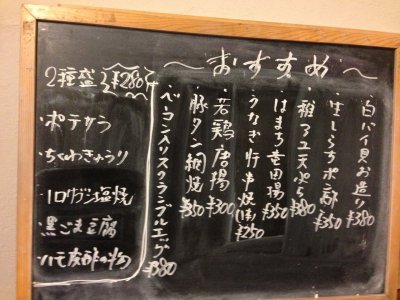 〜おすすめ〜
・白バイ貝お造り ¥380
・生しらすポン酢 ¥350
・稚アユ天ぷら ¥380
・はまち竜田揚 ¥350
・うなぎ肝串焼(1本) ¥250
・若鶏唐揚 ¥300
・豚タン網焼 ¥350
・ベーコン入りスクランブルエッグ ¥380
2種盛 ¥280
・ポテサラ
・ちくわきゅうり
・黒ごま豆腐